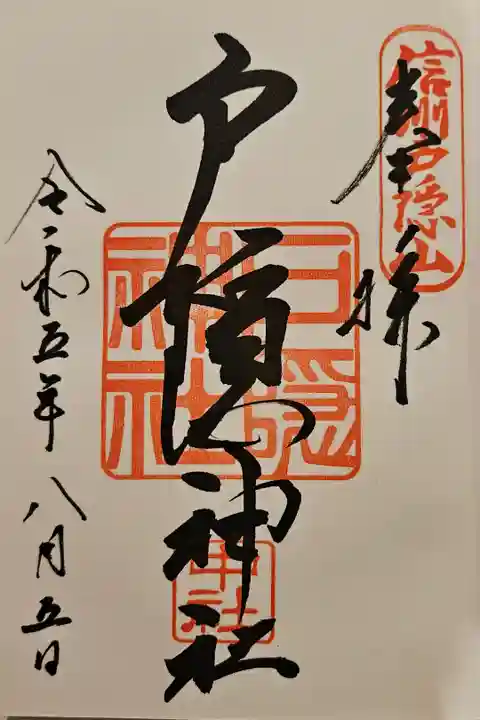 信州戸隠山
奉拝
戸隠神社
戸隠
神社
中社
令和五年八月五日